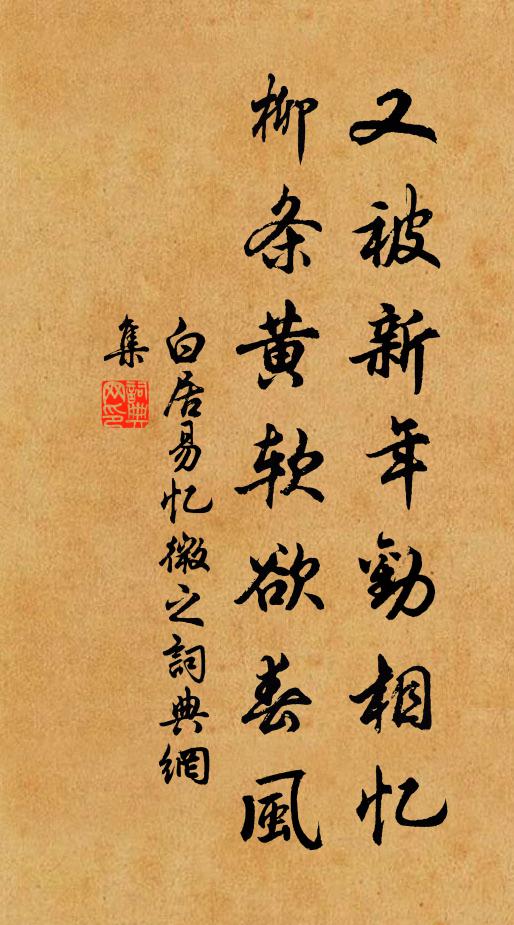 又被新年劝相忆
柳条黄软欲春风
白居易忆微之词典網
集
詞典
网印